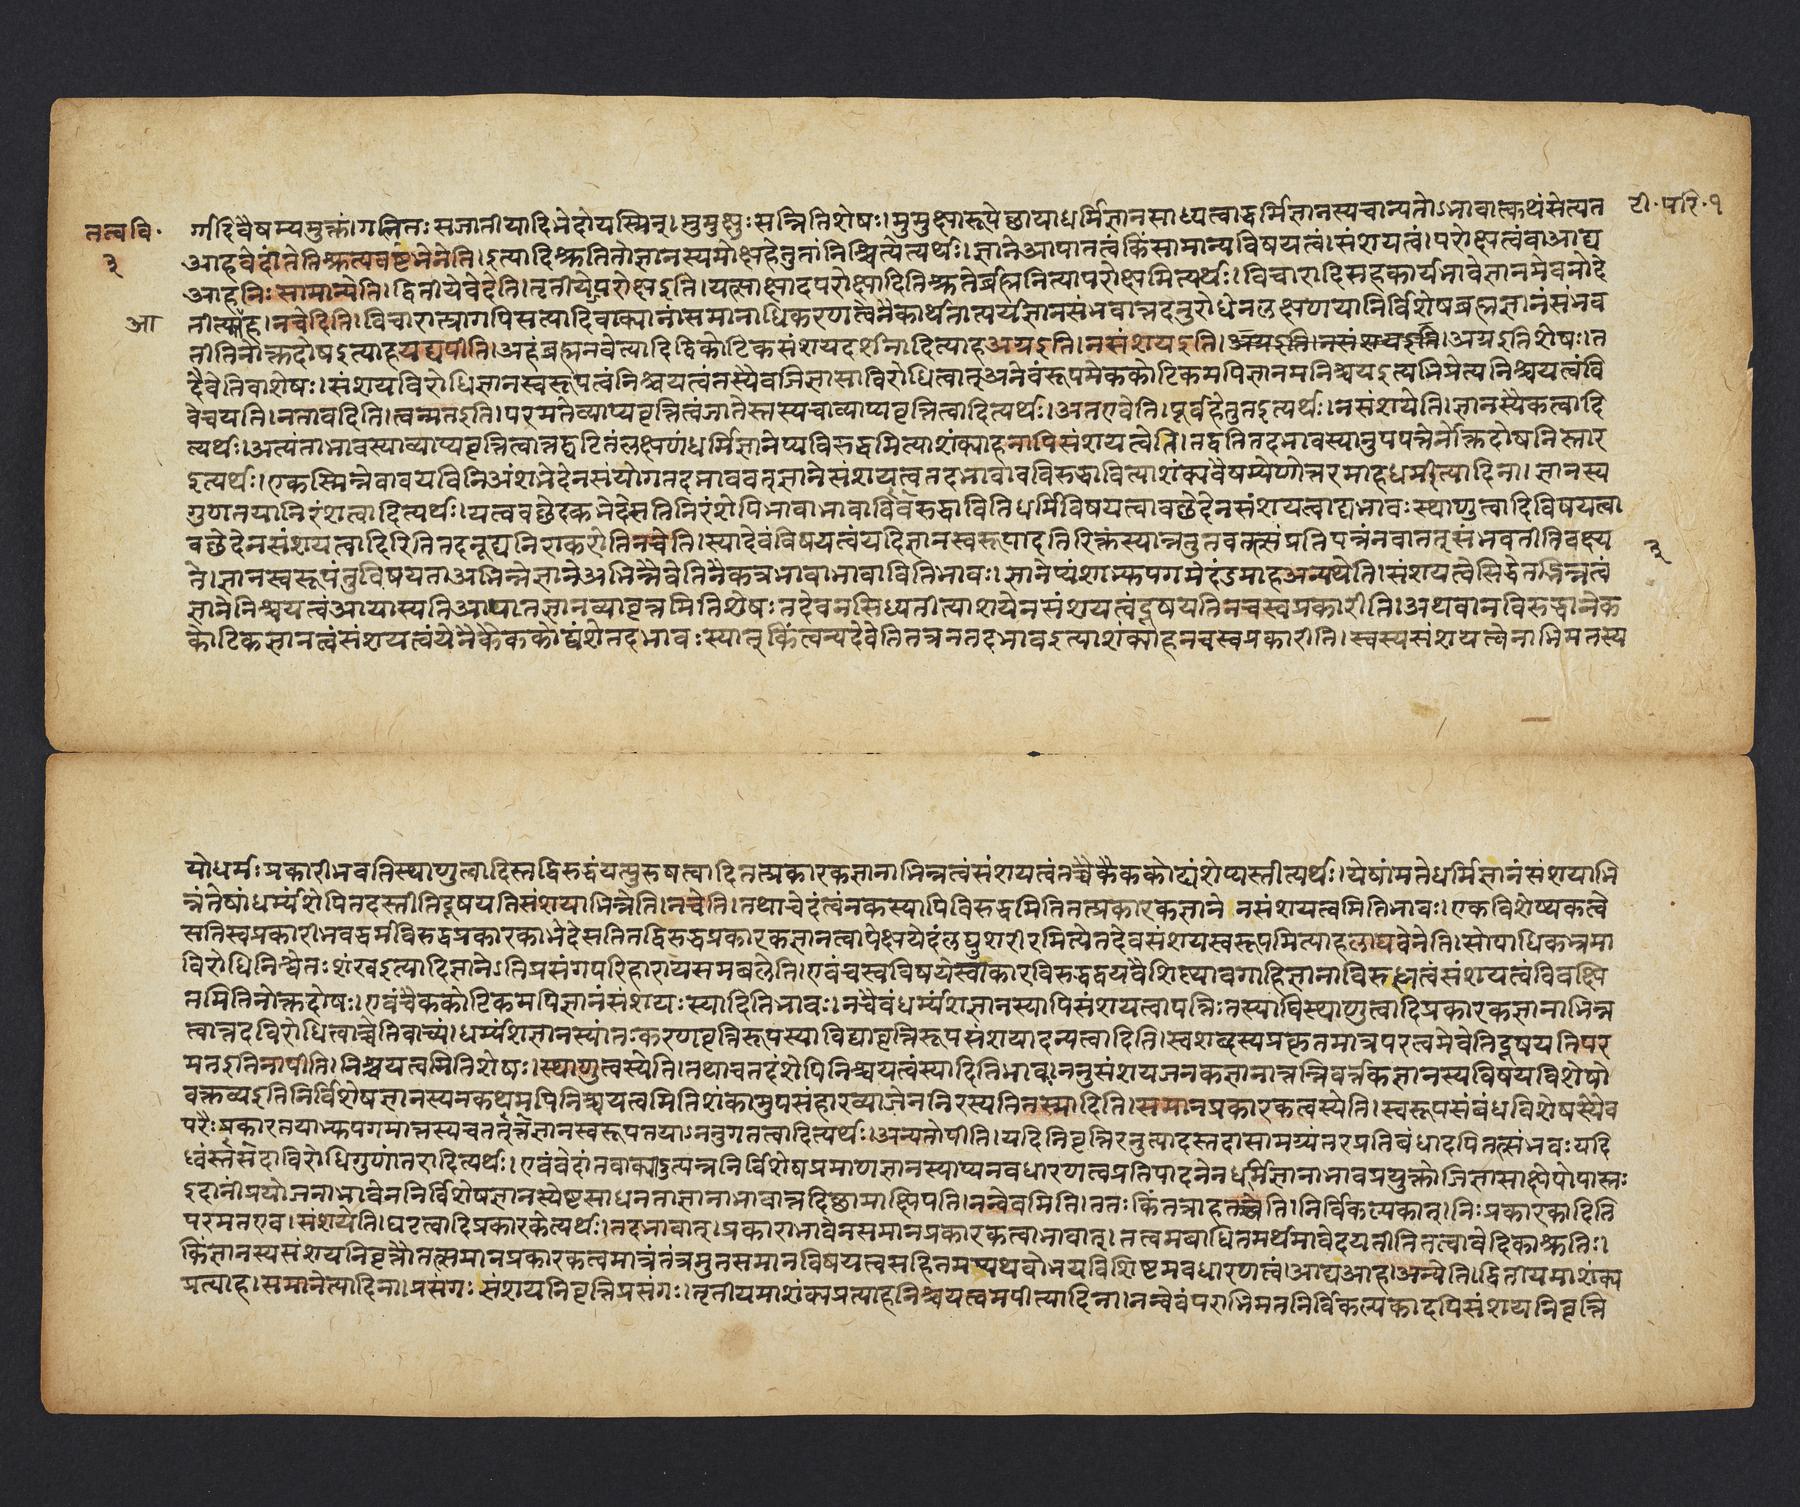 तत्ववि॰
३
टी॰परि॰१
र्गादिवैषम्यमुक्तं।गलितः सजातीयादिभेदोयस्मिन्।मुमुक्षुःसन्नितिशेषः।मुमुक्षारूपेछायाधर्मिज्ञानसाध्यत्वाद्धर्मिज्ञानस्यचान्यतोऽभावात्कथंसेत्यत
आहवेदांतेतिश्रुत्यवष्टंभेनेति।इत्यादिश्रुतितोज्ञानस्यमोक्षहेतुतांनिश्चित्येत्यर्थः।ज्ञानेआपातत्वंकिंसामान्यविषयत्वं।संशयत्वं।परोक्षत्वंवाआद्य
आहनिःसामान्येति।द्वितीयेवेदेति।तृतीयेपरोक्षइति।यत्साक्षादपरोक्षादितिश्रुतेर्ब्रह्मनित्यापरोक्षमित्यर्थः।विचारादिसहकार्यभावेज्ञानमेवनोदे
आ
तीत्याह।नचेदिति।विचारात्प्रागपिसत्यादिवाक्यानांसमानाधिकरणत्वेनैकार्थतात्पर्यज्ञानसंभवात्तदनुरोधेनलक्षणयानिर्विशेषब्रह्मज्ञानंसंभव
तीतिनोक्तदोषइत्याहयद्यपीति।अहंब्रह्मनवेत्यादिद्विकोटिकसंशयदर्शनादित्याहअयइति।नसंशयइति।अयइति।नसंशयइति।अयइतिशेषः।त
दैवेतिवाशेषः।संशयविरोधिज्ञानस्वरूपत्वंनिश्चयत्वंतस्यैवजिज्ञासाविरोधित्वात्अनेवंरूपमेककोटिकमपिज्ञानमनिश्चयइत्यभिप्रेत्यनिश्चयत्वंवि
वेचयति।नतावदिति।त्वन्मतइति।परमतेव्याप्यवृत्तित्वंजातेस्तस्यचाव्याप्यवृत्तित्वादित्यर्थः।अतएवेति।पूर्वहेतुतइत्यर्थः।नसंशयेति।ज्ञानस्यैकत्वादि
त्यर्थः।अत्यंताभावस्याव्याप्यवृत्तित्वात्तद्घटितंलक्षणंधर्मिज्ञानेप्यविरुद्धमित्याशंक्याहनापिसंशयत्वेति।तद्वतितदभावस्यानुपपत्तेर्नोक्तदोषनिस्तार
इत्यर्थः।एकस्मिन्नेवावयविनिअंशभेदेनसंयोगतदभाववत्ज्ञानेसंशयत्वतदभावावविरुद्धावित्याशंक्यवैषम्येणोत्तरमाहधर्मीत्यादिना।ज्ञानस्य
गुणतयानिरंशत्वादित्यर्थः।यत्ववछेदकभेदेसतिनिरंशेपिभावाभावावविरुद्धावितिधर्मिविषयत्वावछेदेनसंशयत्वाद्यभावःस्थाणुत्वादिविषयत्वा
३
वछेदेनसंशयत्वादिरितितदनूद्यनिराकरोतिनचेति।स्यादेवंविषयत्वंयदिज्ञानस्वरूपादतिरिक्तंस्यान्नतुतवतत्संप्रतिपन्नंनवातत्संभवतीतिवक्ष्य
ते।ज्ञानस्वरूपंतुविषयताअभिन्नेज्ञानेअभिन्नैवेतिनैकत्रभावाभावावितिभावः।ज्ञानेप्यंशाभ्युपगमेदंडमाहअन्यथेति।संशयत्वेसिद्धेतद्भिन्नत्व
ज्ञानेनिश्चयत्वंआयास्यतिआपातज्ञानव्यावृत्तमितिशेषःतदेवनसिध्यतीत्याशयेनसंशयत्वंदूषयतिनचस्वप्रकारीति।अथवानविरुद्धानेक
कोटिकज्ञानत्वंसंशयत्वंयेनैकैककोट्यंशेतदभावःस्यात्किंत्वन्यदेवेतितत्रनतदभावइत्याशंक्याहनचस्वप्रकारीति।स्वस्यसंशयत्वेनाभिमतस्य
योधर्मःप्रकारीभवतिस्थाणुत्वादिस्तद्विरुद्धंयत्पुरुषत्वादितत्प्रकारकज्ञानाभिन्नत्वंसंशयत्वंतच्चैकैककोट्यंशेप्यस्तीत्यर्थः।येषांमतेधर्मिज्ञानंसंशयाभि
न्नंतेषांधर्म्यंशेपितदस्तीतिदूषयतिसंशयाभिन्नेति।नचेति।तथाचेदंत्वंनकस्यापिविरुद्धमितितत्प्रकारकज्ञाने नसंशयत्वमितिभावः।एकविशेष्यकत्वे
सतिस्वप्रकारीभवद्धर्मविरुद्धप्रकारकाभेदेसतितद्विरुद्धप्रकारकज्ञानत्वापेक्षयेदंलघुशरीरमित्येतदेवसंशयस्वरूपमित्याहलाघवेनेति।सोपाधिकभ्रमा
विरोधिनिश्चितःशंखइत्यादिज्ञानेऽतिप्रसंगपरिहारायसमबलेति।एवंचस्वविषयेस्वाकारविरुद्धद्वयवैशिष्ट्यावगाहिज्ञानाविरुद्धत्वंसंशयत्वंविवक्षि
तमितिनोक्तदोषः।एवंचैककोटिकमपिज्ञानंसंशयःस्यादितिभावः।नचैवंधर्म्यंशज्ञानस्यापिसंशयत्वापत्तिःतस्यापिस्थाणुत्वादिप्रकारकज्ञानाभिन्न
त्वात्तदविरोधित्वाच्चेतिवाच्यं।धर्म्यंशज्ञानस्यांतःकरणवृत्तिरूपस्याविद्यावृत्तिरूपसंशयादन्यत्वादिति।स्वशब्दस्यप्रकृतमात्रपरत्वमेवेतिदूषयतिपर
मतइतिनापीति।निश्चयत्वमितिशेषः।स्थाणुत्वस्येति।तथाचतदंशेपिनिश्चयत्वंस्यादितिभावः।ननुसंशयजनकज्ञानात्तन्निवर्तकज्ञानस्यविषयविशेषो
वक्तव्यइतिनिर्विशेषज्ञानस्यनकथमपिनिश्चयत्वमितिशंकामुपसंहारव्याजेननिरस्यतितस्मादिति।समानप्रकारकत्वस्येति।स्वरूपसंबंधविशेषस्यैव
परैःप्रकारतयाभ्युपगमात्तस्यचतत्तज्ज्ञानस्वरूपतयाऽननुगतत्वादित्यर्थः।अन्यतोपीति।यदिनिवृत्तिरनुत्पादस्तदासामग्र्यंतरप्रतिबंधादपितत्संभवःयदि
ध्वंसस्तदाविरोधिगुणांतरादित्यर्थः।एवंवेदांतवाक्यादुत्पन्ननिर्विशेषप्रमाणज्ञानस्याप्यनवधारणत्वप्रतिपादनेनधर्मिज्ञानाभावप्रयुक्तोजिज्ञासाक्षेपोपास्तः
इदानींप्रयोजनाभावेननिर्विशेषज्ञानस्येष्टसाधनताज्ञानाभावात्तदिच्छामाक्षिपति।नन्वेवमिति।ततःकिंतत्राहतच्चेति।निर्विकल्पकात्।निःप्रकारकादिति
परमतएव।संशयेति।घटत्वादिप्रकारकेत्यर्थः।तदभावात्।प्रकाराभावेनसमानप्रकारकत्वाभावात्।तत्वमबाधितमर्थमावेदयतीतितत्वावेदिकाश्रुतिः।
किंज्ञानस्यसंशयनिवृत्तौतत्समानप्रकारकत्वमात्रंतंत्रमुतसमानविषयत्वसहितमप्यथवोभयविशिष्टमवधारणत्वं।आद्यआह।अन्येति।द्वितीयमाशंक्य
प्रत्याह।समानेत्यादिना।प्रसंगःसंशयनिवृत्तिप्रसंगः।तृतीयमाशंक्यप्रत्याहनिश्चयत्वमपीत्यादिना।नन्वेवंपराभिमतनिर्विकल्पकादपिसंशयनिवृत्ति